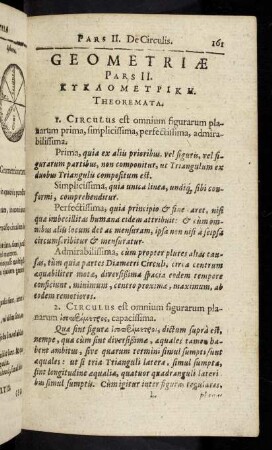 PARS II. De Circulis. 161
GEOMETRIÆ
PARS II.
ΚΥΚΛΟΜΕΤΡΙΚΗ.
THEOREMATA.
1. CIRCULUS est omnium figurarum pla-
narum prima, simplicissima, perfectissima, admira-
bilissima.
Prima, quia ex aliis prioribus vel figuris, vel fi-
gurarum partibus, non componitur, ut Triangulum ex
duobus Triangulis compositum est.
Simplicissima, quia unica linea, undiq, sibi con-
formi, comprehenditur.
Perfectissima, quia principio & fine caret, nisi
quid imbecillitas humana eidem attribuit: & cum om-
nibus aliis locum det ac mensuram, ipsa non nisi à seipsa
circumscribitur & mensuratur.
Admirabilissima, cùm propter plures alias cau-
sas, tùm quia partes Diametri Circuli, circa centrum
æquabiliter motæ, diversissima spacia eodem tempore
conficiunt, minimum, centro proxima, maximum, ab
eodem remotiores.
2. CIRCULUS est omnium figurarum pla-
narum ἰσοπεριμέτρων, capacissima.
Quæ sint figuræ ἰσοπερίμετροι, dictum suprà est,
nempe, quæ cùm sint diversissimæ, æquales tamen ha-
bent ambitus, sive quarum termini simul sumpti sunt æ-
quales: ut si tria Trianguli latera, simul sumpta,
sint longitudine æqualia, quatuor quadranguli lateri-
bus simul sumptis. Cùm igitur inter figuras regulares,
L plano-